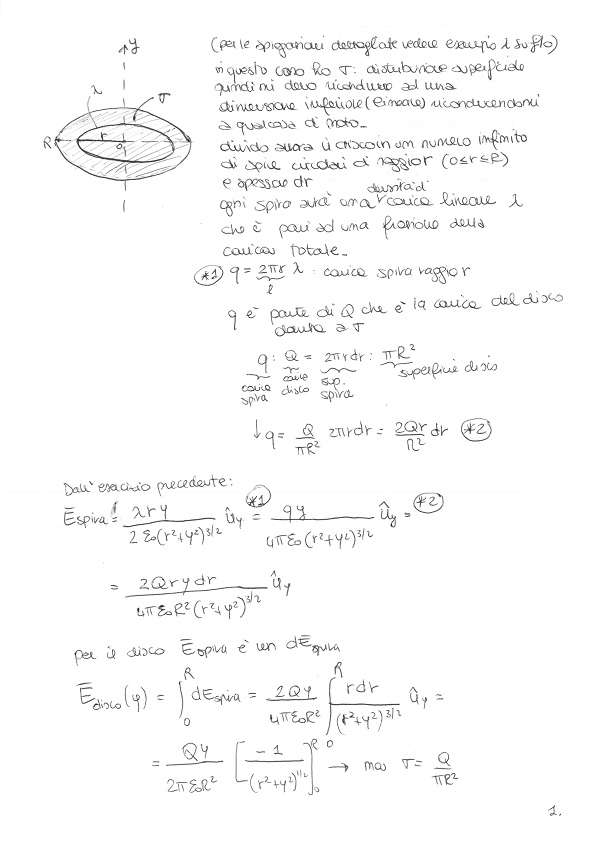 y
λ
σ
R
r
O
(per le spiegazioni dettagliate vedere esempio λ su filo)
in questo caso ho σ: distribuzione superficiale
quindi mi devo ricondurre ad una
dimensione inferiore (lineare) riconducendomi
a qualcosa di noto.
divido allora il disco in un numero infinito
di spire circolari di raggio r (0≤r≤R)
e spessore dr
ogni spira avrà una densità di carica lineare λ
che è pari ad una frazione della
carica totale.
(*1) q = 2πr λ : carica spira raggio r
l
q è parte di Q che è la carica del disco
dovuta a σ
q : Q = 2πrdr : πR²
carica spira carica disco sup. spira superficie disco
↓ q = Q/πR² 2πrdr = 2Qr/R² dr (*2)
Dall' esercizio precedente:
E̅spira = λry / 2ε₀(r²+y²)^3/2 û_y =(*1) qy / 4πε₀(r²+y²)^3/2 û_y =(*2)
= 2Qrydr / 4πε₀R²(r²+y²)^3/2 û_y
per il disco E̅spira è un dE̅spira
E̅disco(y) = ∫₀ᴿ dE̅spira = 2Qy / 4πε₀R² ∫₀ᴿ rdr / (r²+y²)^3/2 û_y =
= Qy / 2πε₀R² [ -1 / (r²+y²)^1/2 ]₀ᴿ → ma σ = Q/πR²
1.